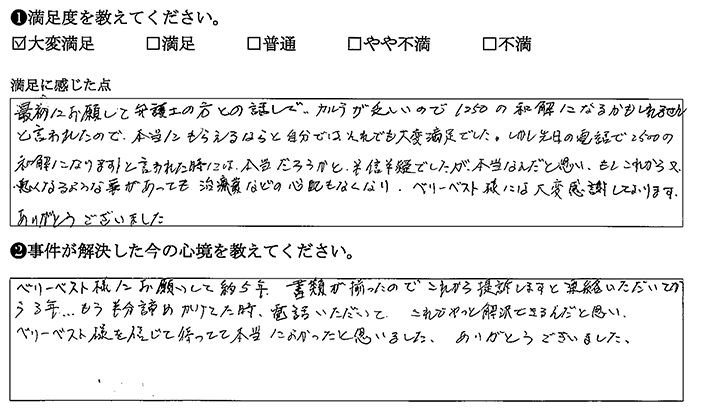 ❶満足度を教えてください。
☑大変満足 □満足 □普通 □やや不満 □不満
満足に感じた点
最初にお願いして弁護士の方との話しで、カルテが乏しいので1250の和解になるかもしれません
と言われたので、本当にもらえるならと自分ではそれでも大変満足でした。しかし先日の電話で2500の
和解になりますと言われた時には、本当だろうかと、半信半疑でしたが、本当なんだと思い、もしこれから又
悪くなるような事があっても治療費などの心配もなくなり、ベリーベスト様には大変感謝しております。
ありがとうございました
❷事件が解決した今の心境を教えてください。
ベリーベスト様にお願いして約5年 書類が揃ったのでこれから提訴しますと連絡いただいてか
ら3年…もう半分諦めかけてた時、電話いただいて これでやっと解決できるんだと思い、
ベリーベスト様を信じて待ってて本当によかったと思いました、ありがとうございました、